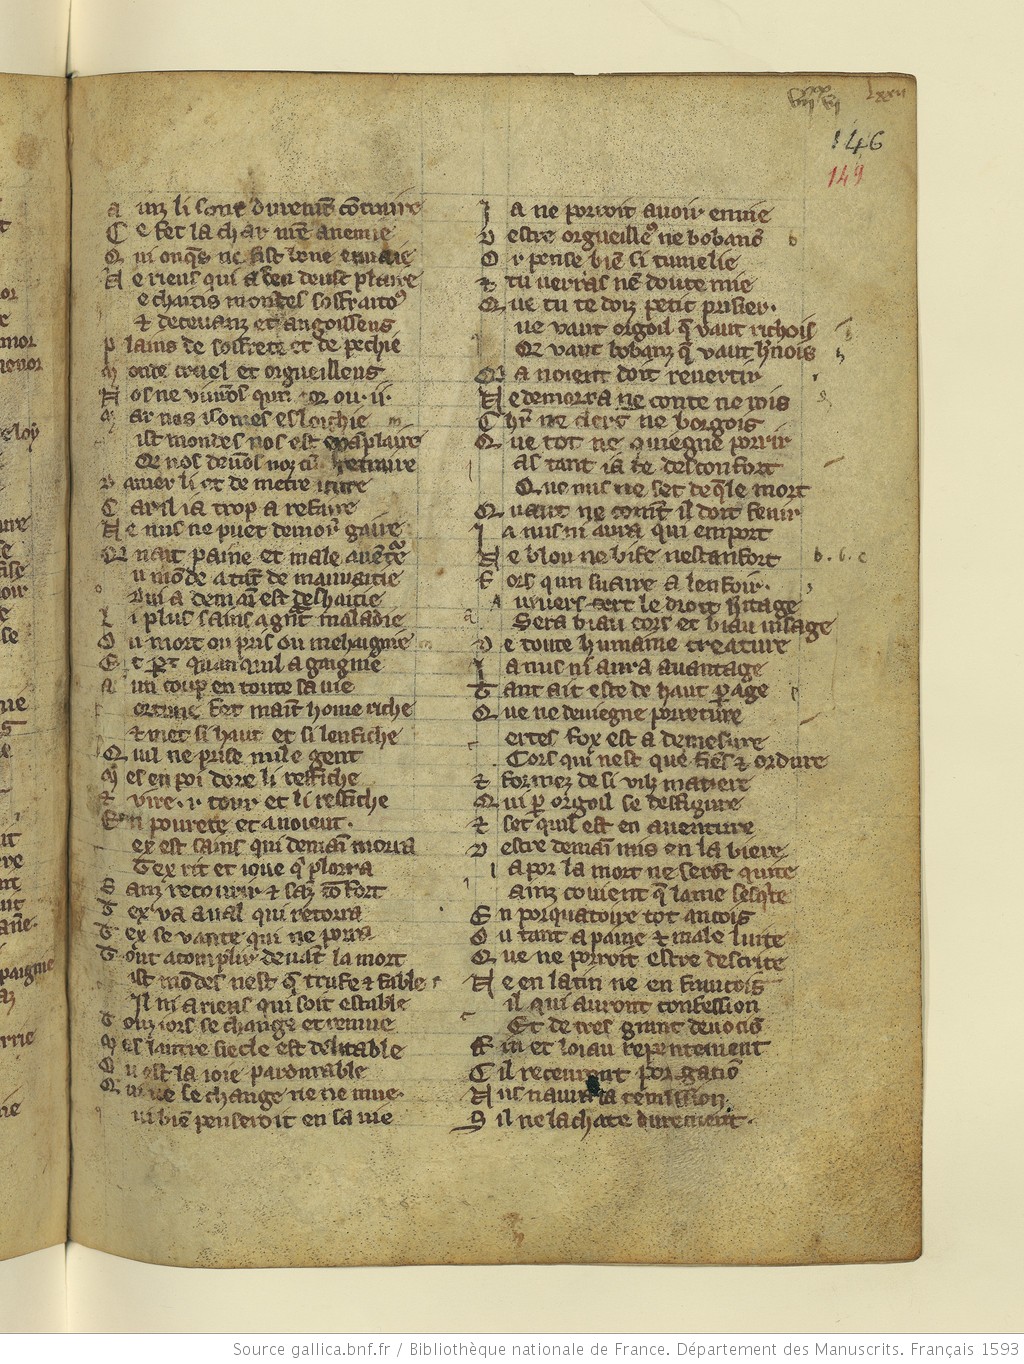 lxxii
146
149
A inz li sont durement contraire
C e fet la char mē anemie
Q ui onq̄s ne fist bone
N e riens qui a deu deust plaire
e chaitis mondes soffraitoꝰ
& decevanz et angoisseus
p lains de soffrete et de pechie
M onte cruel et orgueilleus
N os ne vivrōs qun ior ou .ii.
ist mondes nos est
C ar il ia trop a refaire
N e nus ne puet demorer gaire
u mōde a tāt de mauvaitie
Qui a demaī est deshaitie
L i plus sains a grāt maladie
O u mort ou pris ou mehaignie
E t ꝑt quanquil a gaignie
A un coup en toute sa vie
ortune fet maīt home riche
& met si haut et si lenfiche
Q uil ne prise nule gent
M es en poi dore li resfiche
& vire .i. tour et li resfiche
E n povrete et a noient.
ex est sains qui demain morra
Tex rit et ioue q̄ plorra
S anz recovrir & sāz cōfort
T ex va aval qui retorra
T ex se vante qui ne porra
T out acomplir devāt la mort
ist mōdes nest q̄ trufe & fable
Il ni a riens qui soit estable
T ouz iors se change et remue
M es lautre siecle est delitable
O u est la ioie pardurable
Q ui ne se change ne ne mue.
ui biē penseroit en sa vie
I a ne porroit avoir envie
D estre orgueilleꝰ ne bobans
O r pense biē si tumelie
& tu verras nē doute mie
Q ue tu te doiz petit prisier.
ue vaut orgoil q̄ vaut richois
Q̄ vaut bobanz q̄ vaut h̄nois
Q a noient doit revertir
N e demorra ne conte ne rois
C hr̄ ne clers ne borgois
Q ue tot ne coviegne porrir
as tant ia te desconfort
Que nus ne set de q̄le mort
Q uant ne comt̄ il doit fenir
I a nus ni aura qui emport
N e blou ne bise nestanfort
F ors qun suaire a lenfoir.
u ivers sert le droit h̄itage
Sera biau cors et biau visage
D e toute humaine creature
I a nus ni aura avantage
T ant ait este de haut ꝑage
Q ue ne deviegne porreture
ertes fox est a demesure
Cors qui nest que fiēs & ordure
& formez de si vilz matiere
Q ui ꝑ orgoil se desfigure
& set quil est en aventure
D estre demaī mis en la biere
I a por la mort ne serōt quite
ainz covient q̄ lame
E n porquatoire tot ancois
O u tant a paine & male luite
Q ue ne porroit estre descrite
N e en latin ne en francois
il qui auront confession
Et de tres grant devociō
F in et loiau repentement
C il recevront por gaciō
N us naura la remission
S il ne lachate durement.
Source gallica.bnf.fr / Bibliothèque nationale de France. Département des Manuscrits. Français 1593